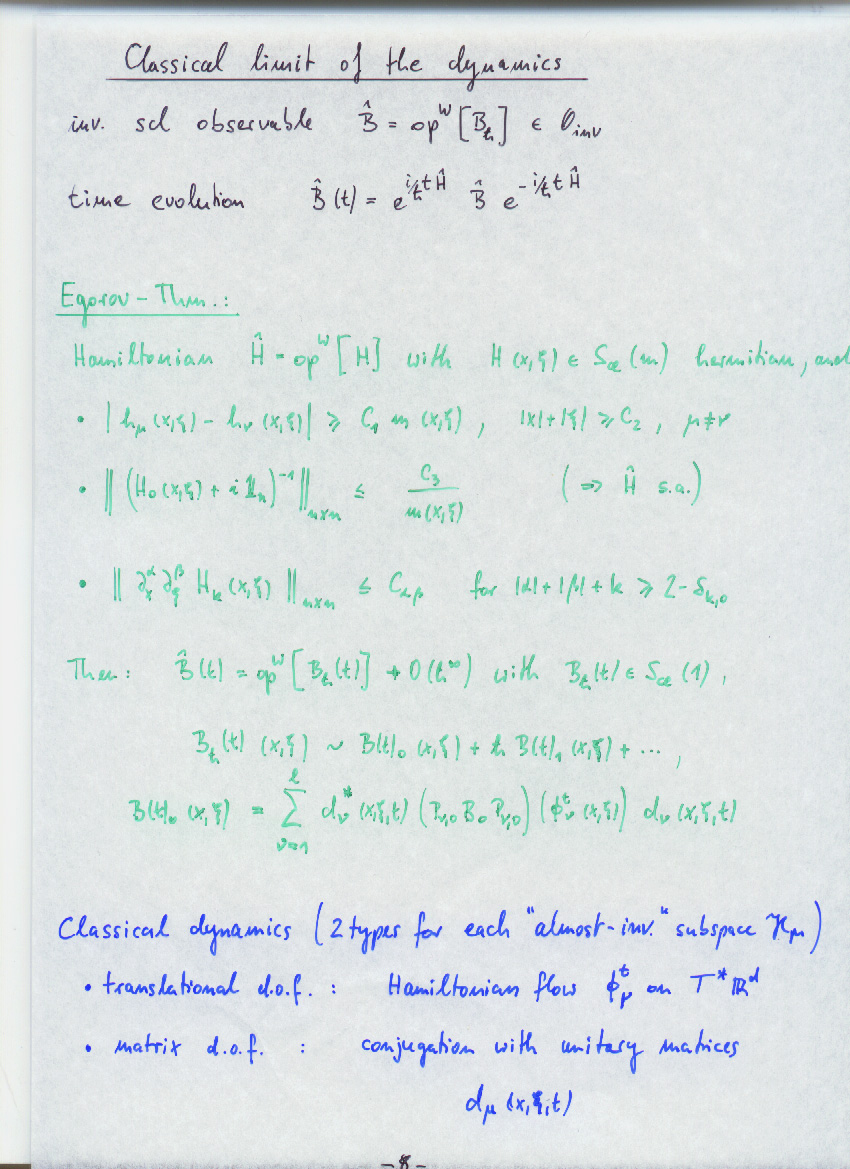 Classical limit of the dynamics
inv. scl observable B̂ = op^W [B_ħ] ∈ O_inv
time evolution B̂(t) = e^{i/ħ t Ĥ} B̂ e^{-i/ħ t Ĥ}
Egorov-Thm.:
Hamiltonian Ĥ = op^W [H] with H(x,ξ) ∈ S_cl(m) hermitian, and
• |h_μ(x,ξ) - h_ν(x,ξ)| ≥ C_1 m(x,ξ), |x|+|ξ| ≥ C_2, μ≠ν
• ‖(H_0(x,ξ) + i 𝟙_n)^{-1}‖_{n×n} ≤ C_3 / m(x,ξ) (⇒ Ĥ s.a.)
• ‖∂_x^α ∂_ξ^β H_k(x,ξ)‖_{n×n} ≤ C_{αβ} for |α|+|β|+k ≥ 2-δ_{k,0}
Then: B̂(t) = op^W [B_ħ(t)] + O(ħ^∞) with B_ħ(t) ∈ S_cl(1),
B_ħ(t) (x,ξ) ~ B(t)_0 (x,ξ) + ħ B(t)_1 (x,ξ) + ⋯,
B(t)_0 (x,ξ) = ∑_{ν=1}^{l} d_ν^*(x,ξ,t) (P_{ν,0} B_0 P_{ν,0}) (ϕ_ν^t (x,ξ)) d_ν(x,ξ,t)
Classical dynamics (2 types for each "almost-inv." subspace ℋ_μ)
• translational d.o.f. : Hamiltonian flow ϕ_μ^t on T*ℝ^d
• matrix d.o.f. : conjugation with unitary matrices
d_μ(x,ξ,t)
-8-